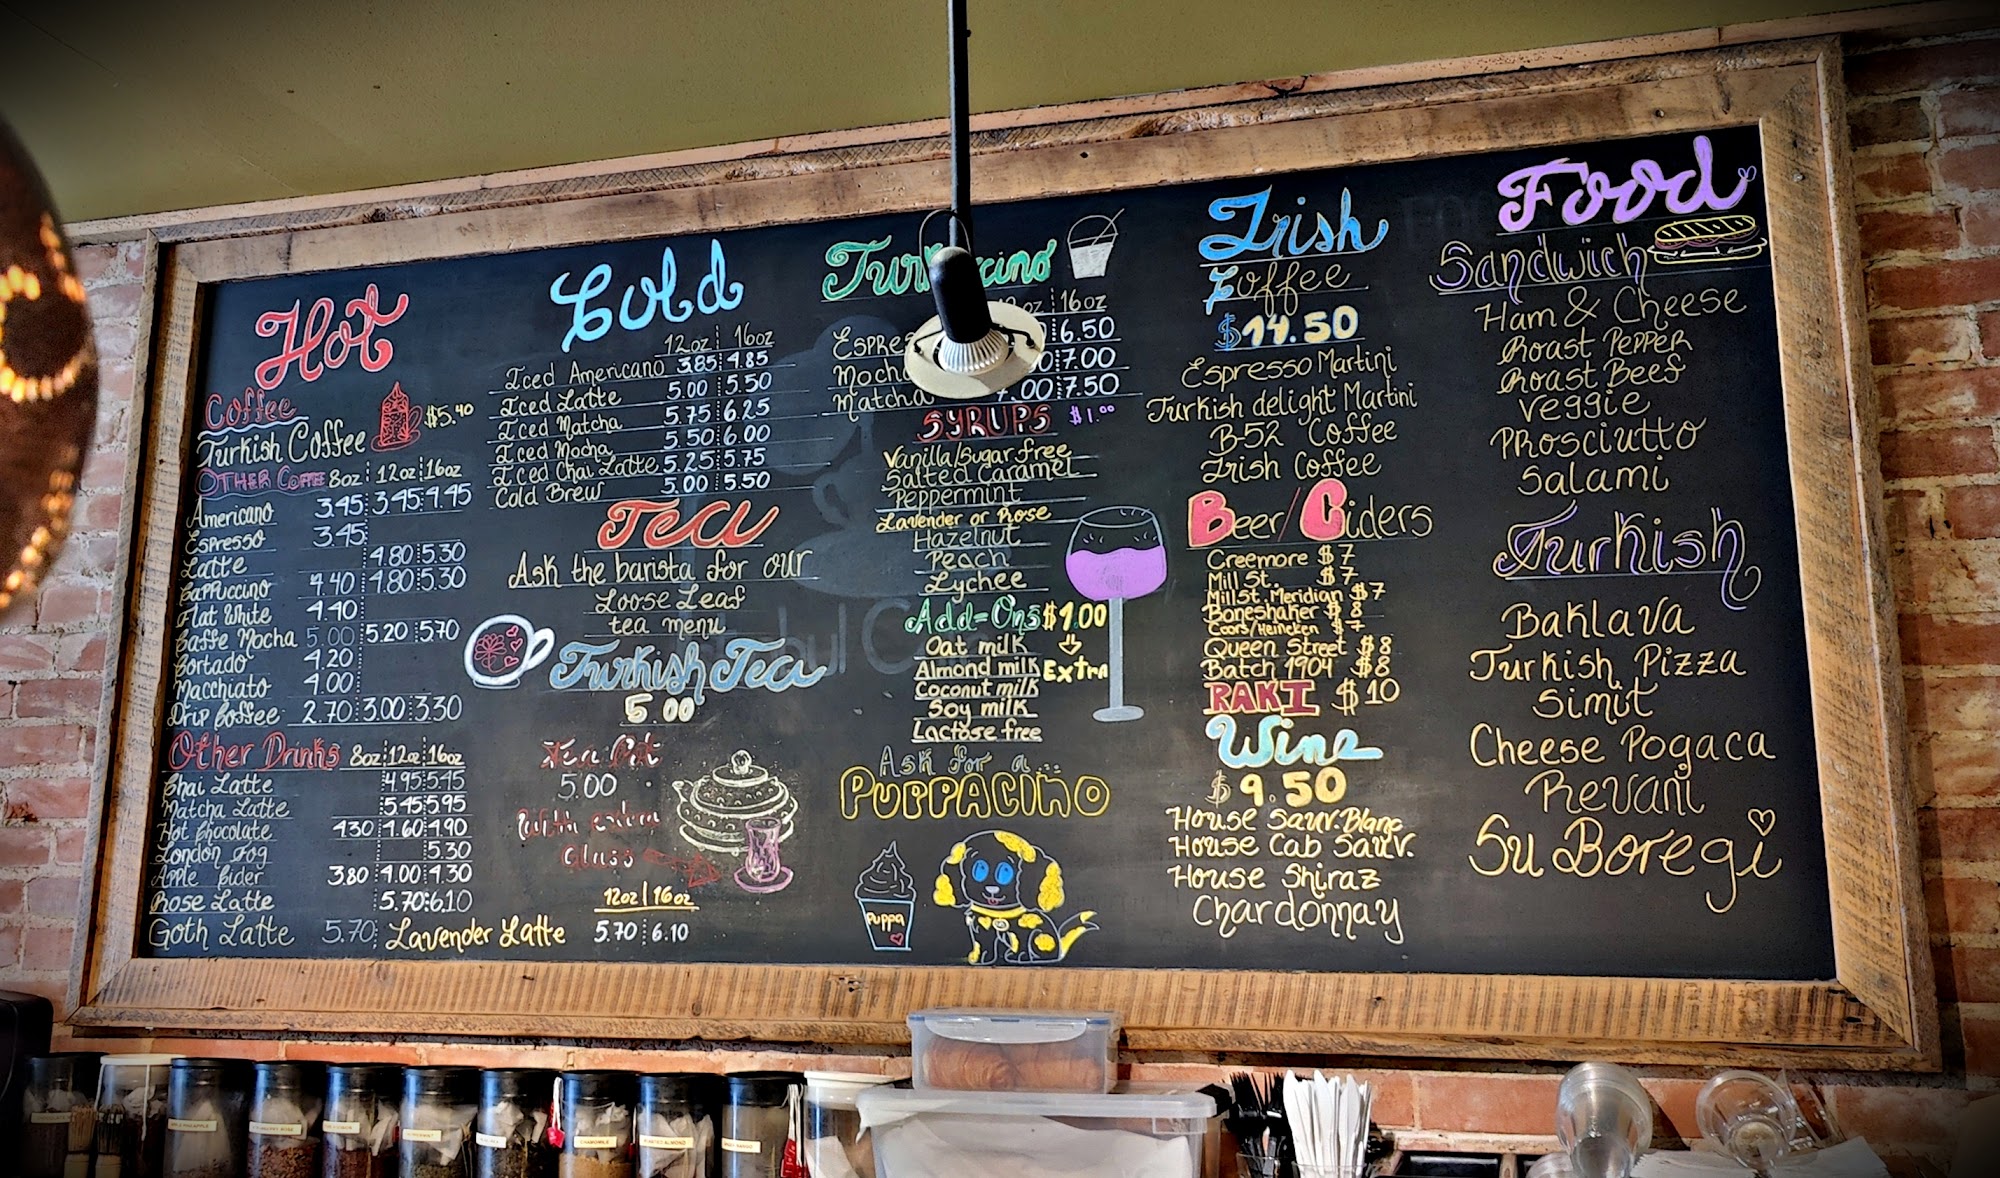 Hot
Coffee
Turkish Coffee $5.40
Other Coffee 8oz 12oz 16oz
Americano 3.45 3.45 4.45
Espresso 3.45
Latte 4.80 5.30
Cappuccino 4.40 4.80 5.30
Flat White 4.40
Caffe Mocha 5.00 5.20 5.70
Cortado 4.20
Macchiato 4.00
Drip Coffee 2.70 3.00 3.30
Other Drinks 8oz 12oz 16oz
Chai Latte 4.95 5.45
Matcha Latte 5.45 5.95
Hot Chocolate 4.30 4.60 4.90
London Fog 5.30
Apple Cider 3.80 4.00 4.30
Rose Latte 5.70 6.10
Goth Latte 5.70
Cold
12oz 16oz
Iced Americano 3.85 4.85
Iced Latte 5.00 5.50
Iced Matcha 5.75 6.25
Iced Mocha 5.50 6.00
Iced Chai Latte 5.25 5.75
Cold Brew 5.00 5.50
Tea
Ask the barista for our
Loose Leaf
tea menu
Turkish Tea
5.00
Tea Pot
5.00
With extra
Glass
12oz | 16oz
Lavender Latte 5.70 6.10
16oz
6.50
Mocha 7.00
Matcha 7.00 7.50
SYRUPS $1.00
Vanilla/Sugar free
Salted Caramel
Peppermint
Lavender or Rose
Hazelnut
Peach
Lychee
Add-Ons $1.00
Oat milk
Almond milk Extra
Coconut milk
Soy milk
Lactose free
Ask for a...
PUPPACINO
Puppa
Irish
Coffee
$14.50
Espresso Martini
Turkish delight Martini
B-52 Coffee
Irish Coffee
Beer/Ciders
Creemore $7
Mill St. $7
Mill St. Meridian $7
Boneshaker $8
Coors/Heineken $7
Queen Street $8
Batch 1904 $8
RAKI $10
Wine
$9.50
House Sauv. Blanc
House Cab Sauv.
House Shiraz
Chardonnay
Food
Sandwich
Ham & Cheese
Roast Pepper
Roast Beef
Veggie
Prosciutto
Salami
Turkish
Baklava
Turkish Pizza
Simit
Cheese Pogaca
Revani
Su Boregi